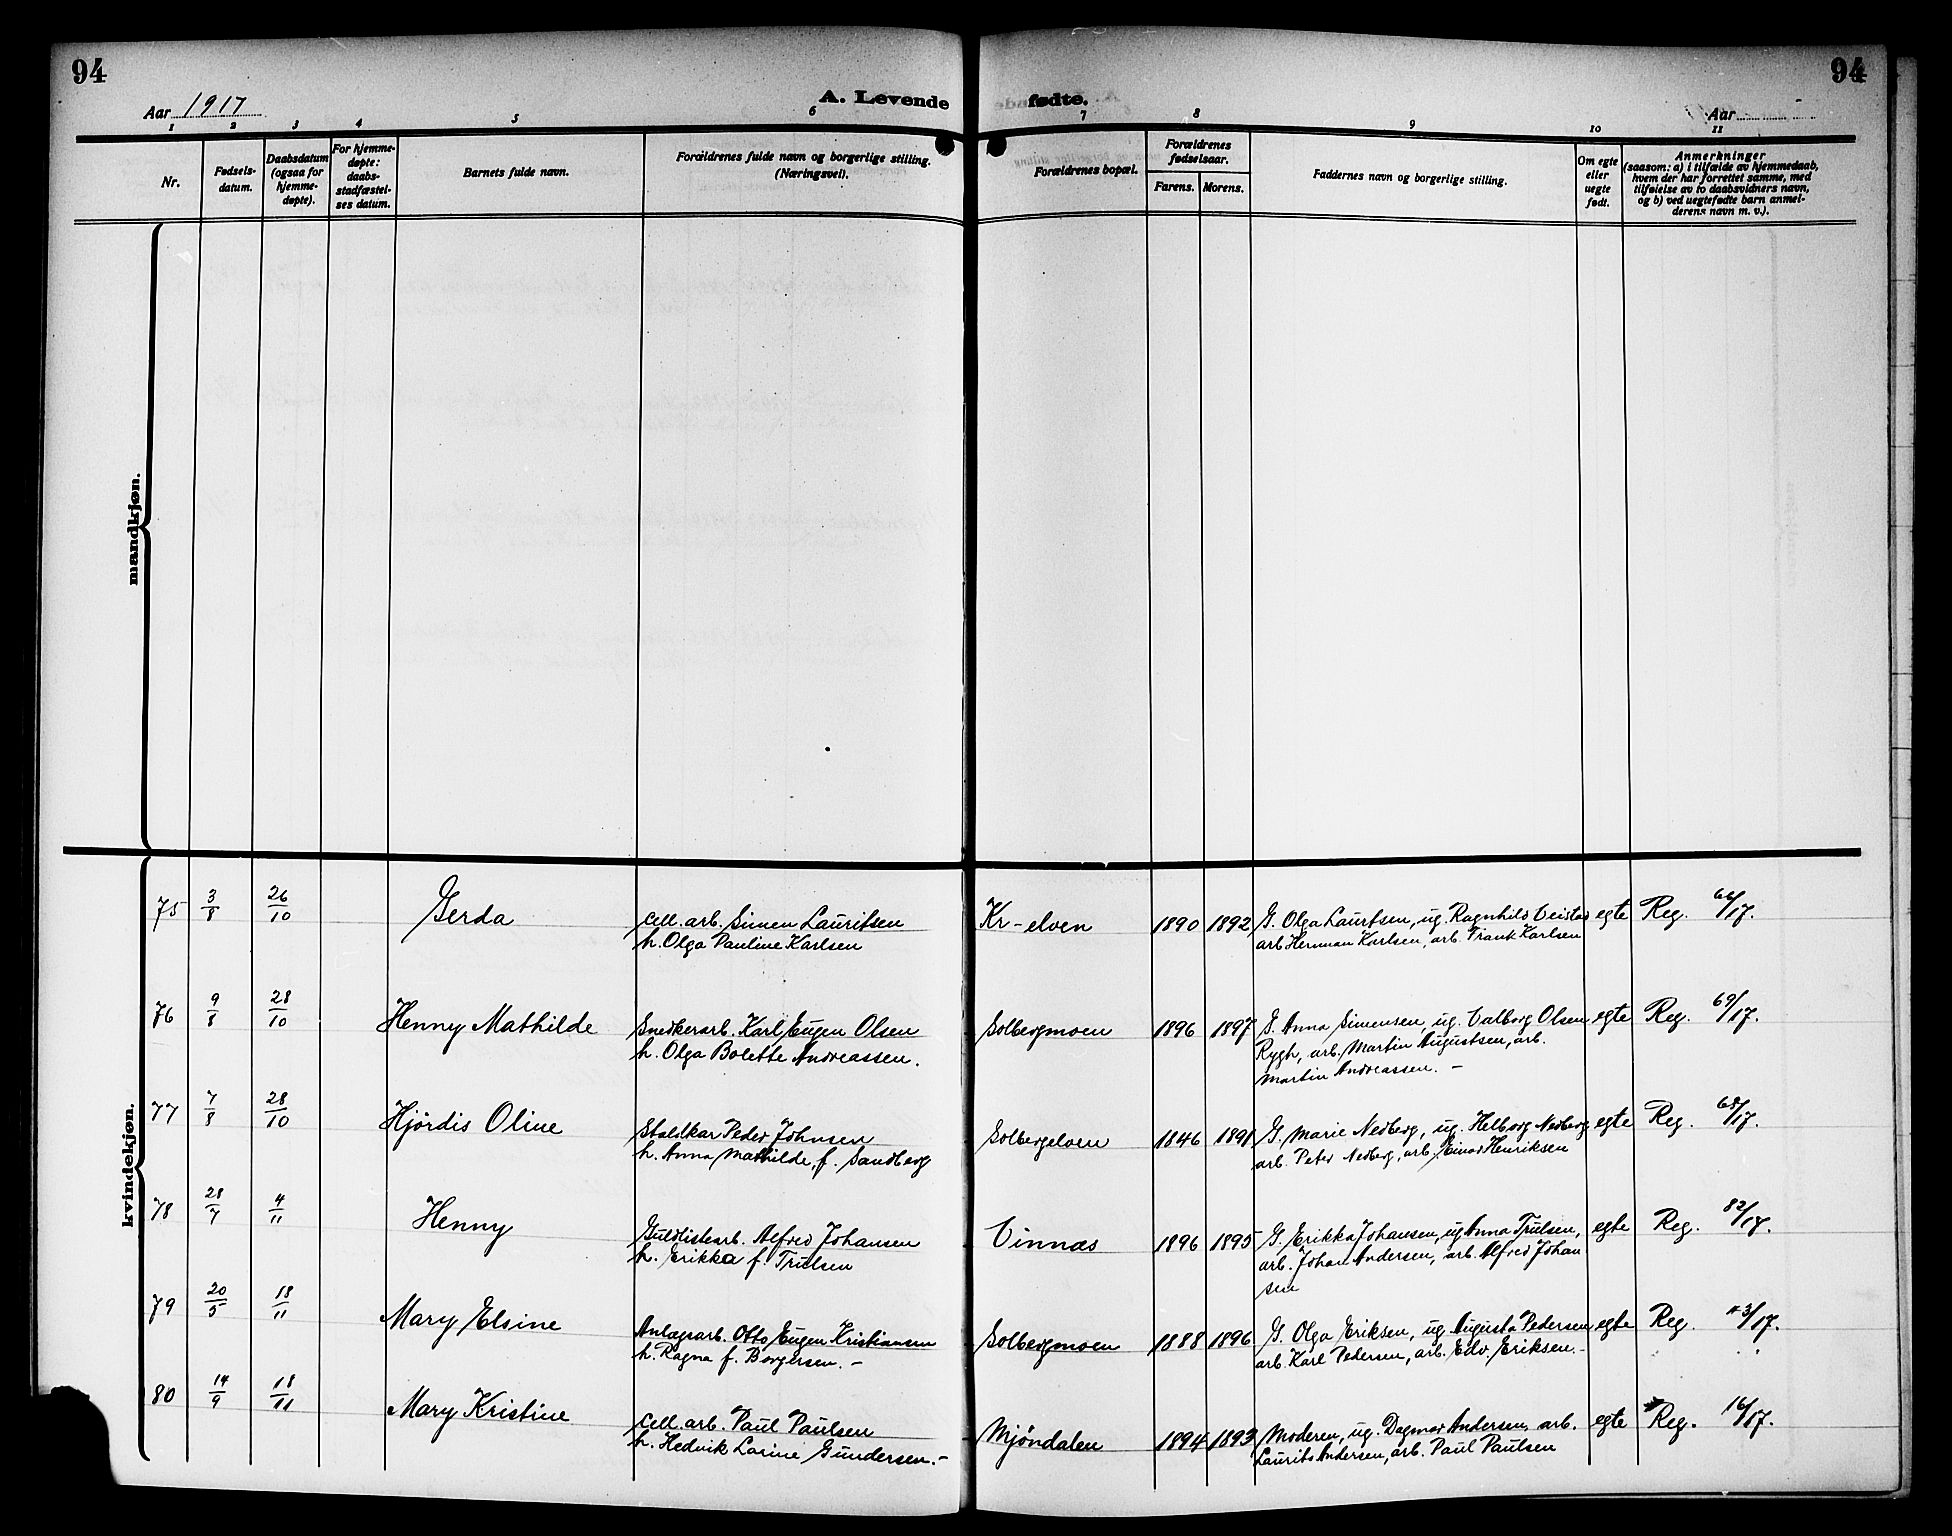 94
94
Aar 1917
A. Levende
fødte.
Aar
1 2 3 4 5 6 7 8 9 10 11
Nr.
Fødsels-
datum.
Daabsdatum
(ogsaa for
hjemme-
døpte).
For hjemme-
døpte:
daabs-
stadfæstel-
ses datum.
Barnets fulde navn.
Forældrenes fulde navn og borgerlige stilling.
(Næringsvei).
Forældrenes bopæl.
Forældrenes
fødselsaar.
Farens. Morens.
Faddernes navn og borgerlige stilling.
Om egte
eller
uegte
født.
Anmerkninger
(saasom: a) i tilfælde av hjemmedaab,
hvem der har forrettet samme, med
tilføielse av to daabsvidners navn,
og b) ved uegtefødte barn anmel-
derens navn m. v.).
mandkjøn.
kvindekjøn.
75 3/8 26/10 Gerda
cell. arb. Simen Lauritsen
h. Olga Pauline Karlsen
Kr-elven 1890 1892
G. Olga Lauritsen, ug. Ragnhild Veistad
arb Herman Karlsen, arb. Frank Karlsen
egte Reg. 66/17.
76 9/8 28/10 Henny Mathilde
Snedkerarb. Karl Eugen Olsen
h. Olga Bolette Andreassen.
Solbergmoen 1896 1897
G. Anna Simensen, ug. Valborg Olsen
Rygh, arb. Martin Augustsen, arb.
Martin Andreassen. –
egte Reg. 69/17.
77 7/8 28/10 Hjördis Oline
Staldkar Peder Johnsen
h. Anna Mathilde f. Sandberg
Solbergelven 1846 1891
G. Marie Nedberg, ug. Helborg Nedberg
arb. Peter Nedberg, arb. Einar Henriksen
egte Reg. 68/17.
78 28/7 4/11 Henny
Guldlistearb. Alfred Johansen
h. Erikka f. Trulsen
Vinnæs 1896 1895
G. Erikka Johansen, ug Anna Trulsen,
arb. Johan Andersen, arb. Alfred Johan
sen
egte Reg. 82/17.
79 20/5 18/11 Mary Elsine
Anlægsarb. Otto Eugen Kristiansen
h. Ragna f. Borgersen. –
Solbergmoen 1888 1896
G. Olga Eriksen, ug Augusta Pedersen
arb. Karl Pedersen, arb. Edv. Eriksen. –
egte Reg. 43/17.
80 14/9 18/11 Mary Kristine
cell. arb. Paul Paulsen
h. Hedvik Larine Gundersen. –
Mjöndalen 1894 1893
Moderen, ug. Dagmar Andersen, arb.
Laurits Andersen, arb. Paul Paulsen
egte Reg. 16/17.